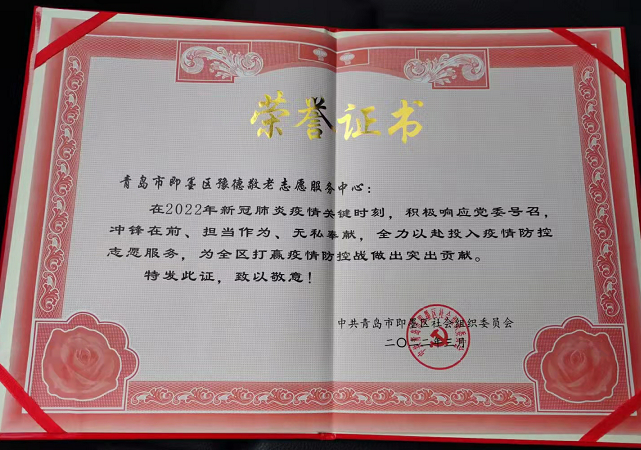 荣誉证书
青岛市即墨区豫德敬老志愿服务中心：
在2022年新冠肺炎疫情关键时刻，积极响应党委号召，
冲锋在前、担当作为、无私奉献，全力以赴投入疫情防控
志愿服务，为全区打赢疫情防控战做出突出贡献。
特发此证，致以敬意！
中共青岛市即墨区社会组织委员会
二〇二二年三月